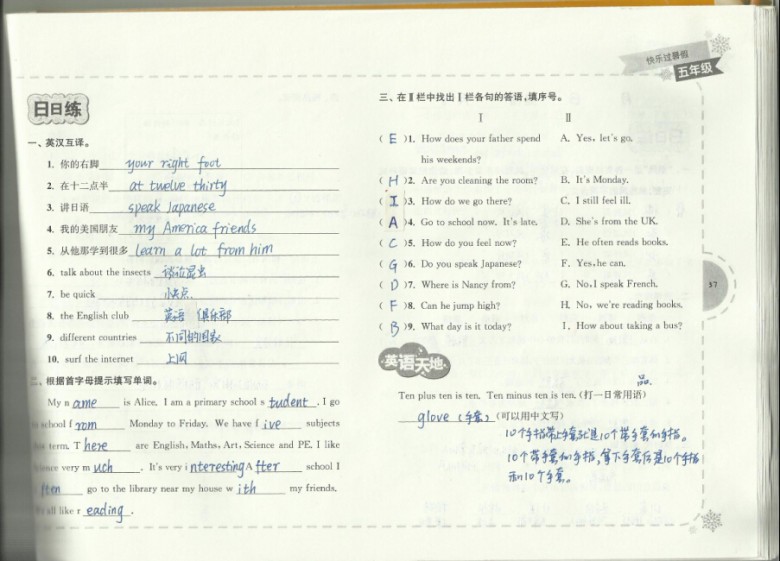 快乐过暑假
五年级
日日练
一、英汉互译。
1. 你的右脚 your right foot
2. 在十二点半 at twelve thirty
3. 讲日语 speak Japanese
4. 我的美国朋友 my America friends
5. 从他那学到很多 learn a lot from him
6. talk about the insects 谈论昆虫
7. be quick 快点.
8. the English club 英语 俱乐部
9. different countries 不同的国家
10. surf the internet 上网
二、根据首字母提示填写单词。
My name is Alice. I am a primary school student. I go
school from Monday to Friday. We have five subjects
term. There are English, Maths, Art, Science and PE. I like
very much. It's very interesting After school I
often go to the library near my house with my friends.
all like reading.
三、在Ⅱ栏中找出Ⅰ栏各句的答语,填序号。
Ⅰ Ⅱ
( E )1. How does your father spend A. Yes, let's go.
his weekends?
( H )2. Are you cleaning the room? B. It's Monday.
( I )3. How do we go there? C. I still feel ill.
( A )4. Go to school now. It's late. D. She's from the UK.
( C )5. How do you feel now? E. He often reads books.
( G )6. Do you speak Japanese? F. Yes, he can.
( D )7. Where is Nancy from? G. No, I speak French.
( F )8. Can he jump high? H. No, we're reading books.
( B )9. What day is it today? I. How about taking a bus?
37
英语天地
品.
Ten plus ten is ten. Ten minus ten is ten. (打一日常用语)
glove (手套) (可以用中文写)
10个手指带上手套就是10个带手套的手指。
10个带手套的手指,拿下手套后是10个手指
和10个手套。